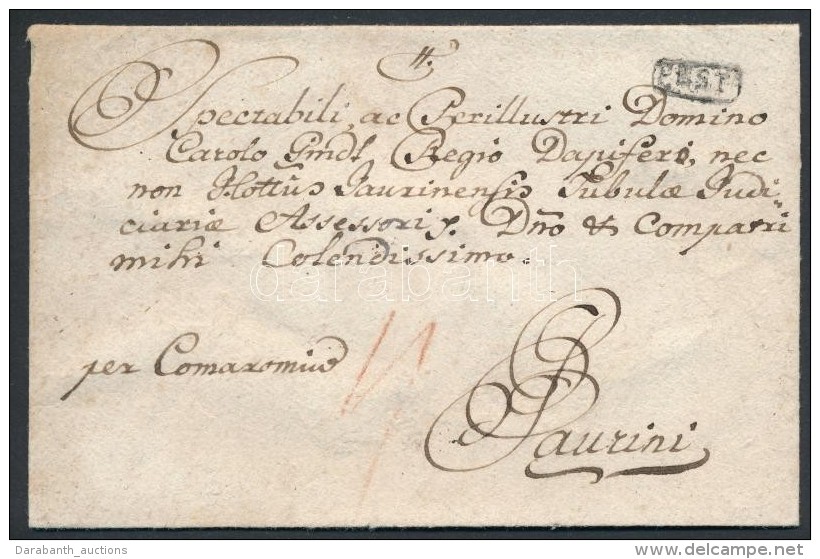 PEST
Spectabili, ac Perillustri Domino
Carolo Gindl Regio Dapifero, nec
non Jaurinensis Tabulæ Judi-
ciariæ Assessori Dno & Compatri
mihi Colendissimo.
darabanth
per Comaromiũ
Jaurini
Darabanth_auctions
delcampe.net